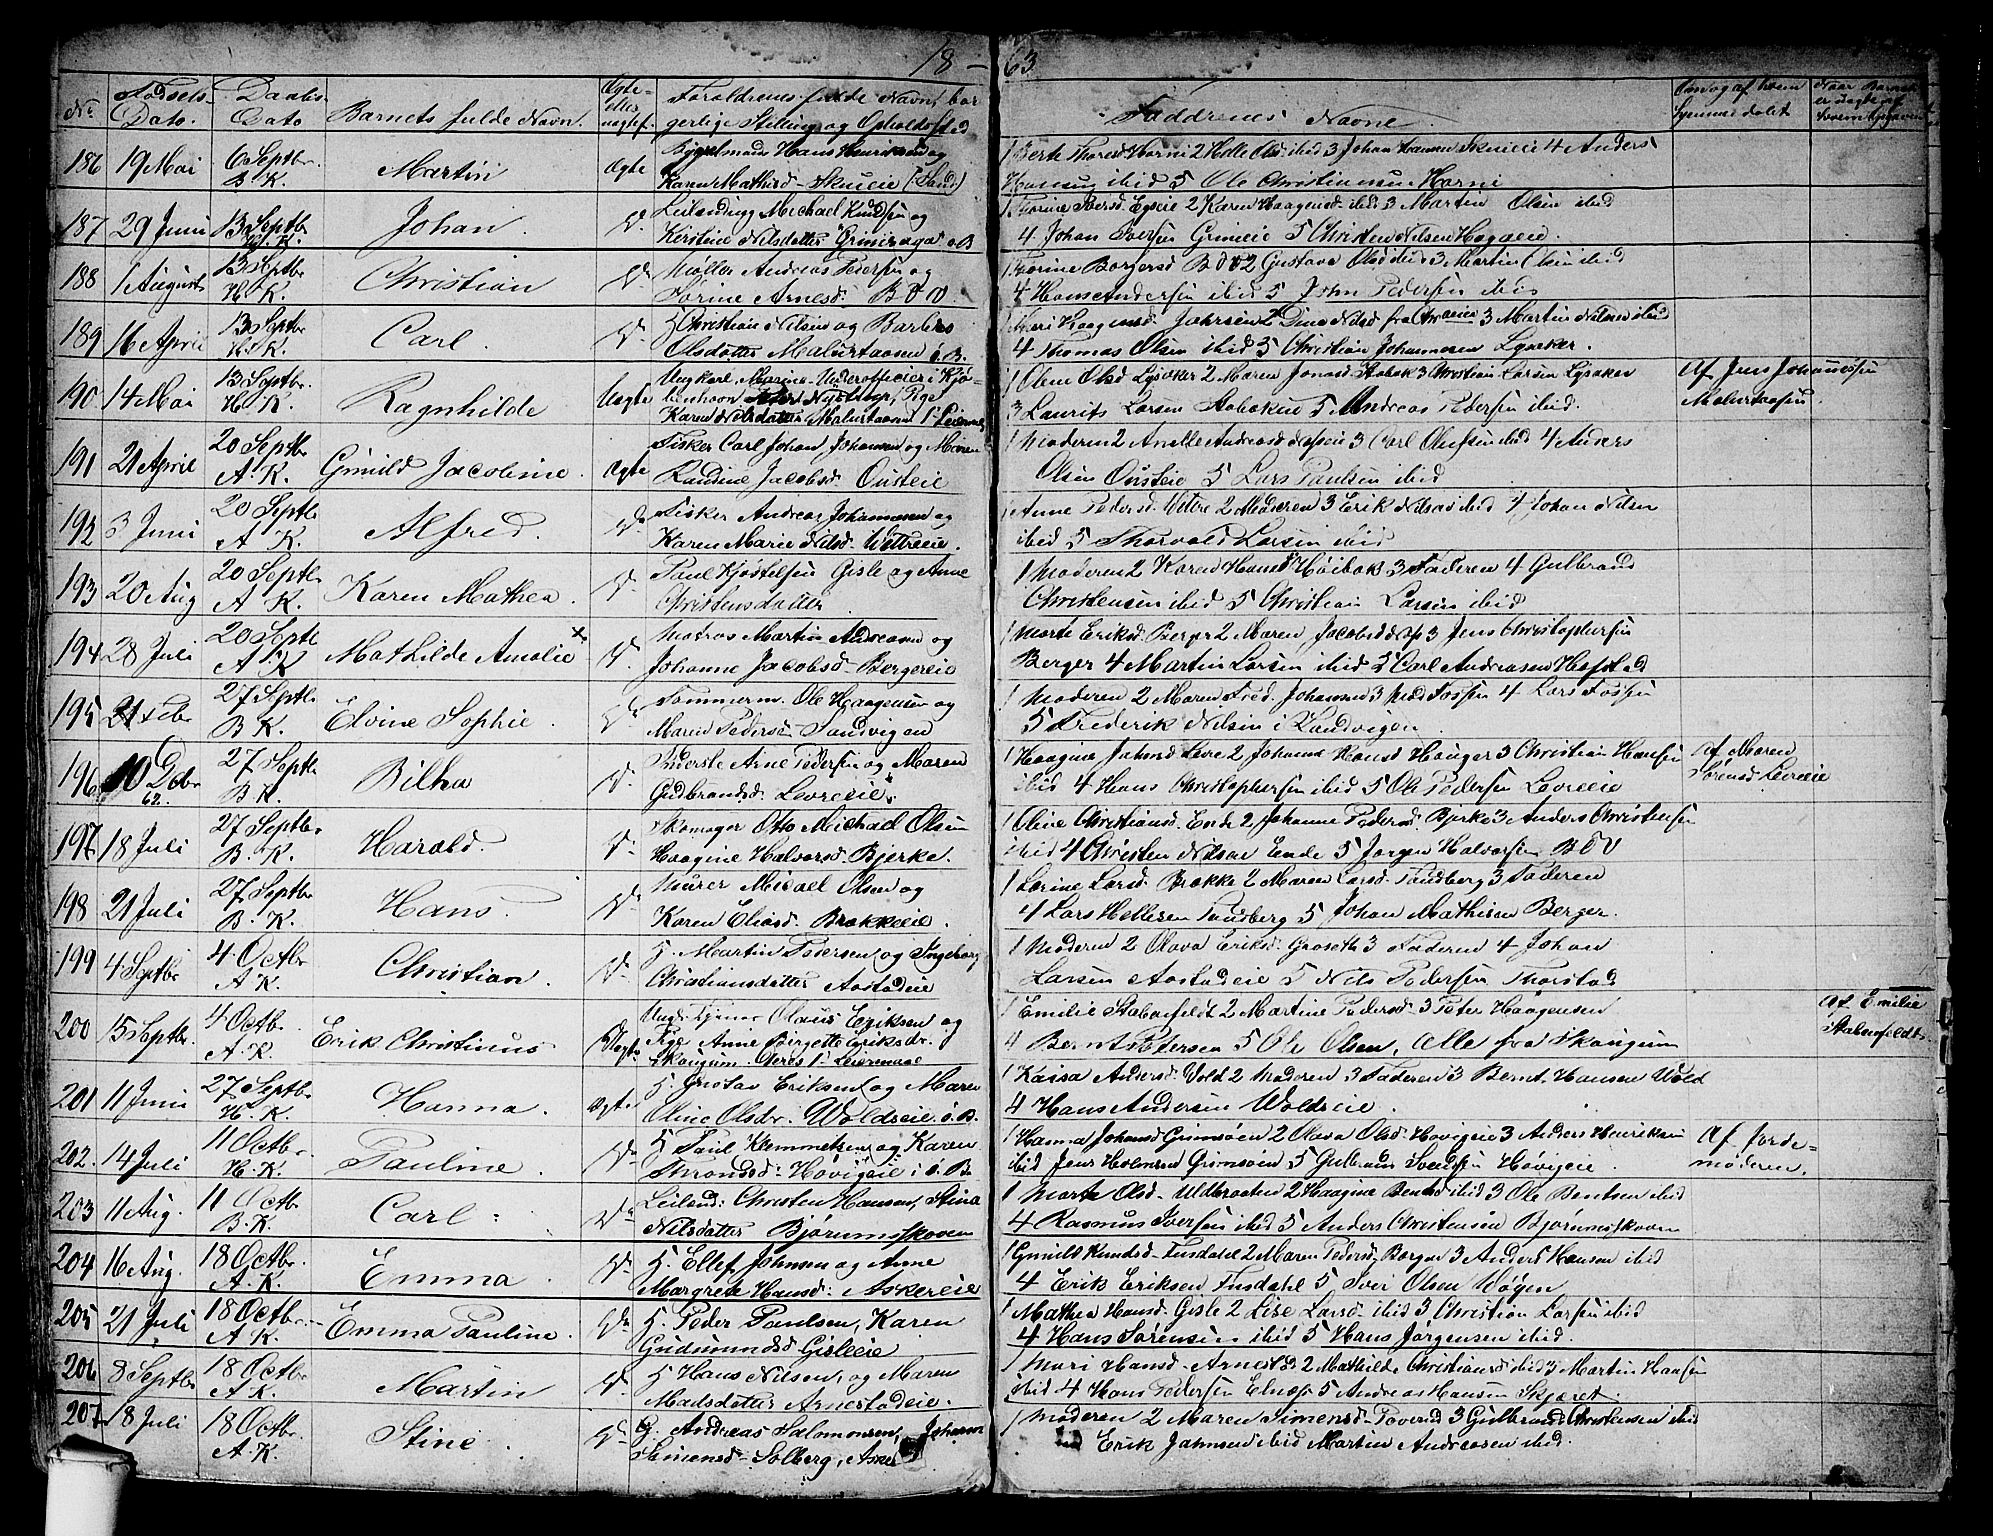 18-63
No Fødsels-Dato. Daabs-Dato Barnets fulde Navn. Ægte eller uægtef. Forældrenes fulde Navn, borgerlige Stilling og Opholdssted Faddrenes Navne.
186 19 Mai 6 Septbr B. K. Martin Ægte Hans Henriksen og
Karen Mathisd. Skueie (Sand)
1 Berte Thoresd Horni 2 Helle Olsd ibid 3 Johan Skueie 4 Anders
Hansen ibid 5 Ole Christiansen Horni
187 29 Juni 13 Septbr H. K. Johan Do Leilending Michael Knudsen og
Kirstine Nilsdatter Griniraga o. B
Iversd. Eyseie 2 Karen Haagensd. ibid 3 Martin Olsen ibid
4 Johan Iversen Grinieie 5 Christen Nilsen Hagaeie.
188 1 August 13 Septbr H. K. Christian Do Møller Andreas Pedersen og
Sørine Arnesd. B
1 Borgersd 2 Gustava Olsd ibid 3 Martin Olsen ibid
4 Hans Andersen ibid 5 John Pedersen ibid
189 16 April 13 Septbr H. K. Carl. Do H Christian Nilsen og Barbro
Olsdatter Malurtaasen o. B.
1 Mari Haagensd. 2 Dina Nilsd fra 3 Martin Nilsen ibid
4 Thomas Olsen ibid 5 Christian Johannesen Lysaker.
190 14 Mai 13 Septbr. H. K. Ragnhilde Uægte Ungkarl, Marine-Underofficier i Kjø-
benhavn Nystrup, Pige
Karen Nilsdatter Malurtaasen 1ste Leierm.
1 Oline Olsd Lysaker 2 Maren Jonasd Stabæk 3 Christian Larsen Lysaker
3 Laurits Larsen Stabækeie 5 Andreas Pedersen ibid.
Af Jens Johannessen
Malurtaasen
191 21 April 20 Septbr A. K. Gunild Jacobine. Ægte Fisker Carl Johan Johansen og Maren
Randine Jacobsd Østeie
1 Moderen 2 Anette Andreasd Næseie 3 Carl Olufsen ibid 4 Anders
Olsen 5 Lars Paulsen ibid
192 3 Juni 20 Septbr A K. Alfred Do Fisker Andreas Johannesen og
Karen Marie Nilsd. Wettreeie.
1 Anne Pedersd. Vettre 2 Moderen 3 Erik Nilsen ibid 4 Johan Nilsen
ibid 5 Thorvald Larsen ibid
193 20 Aug 20 Septbr A K. Karen Mathea. Do Paul Kjostelsen Gisle og Anne
Christensdatter
1 Moderen 2 Karen Hansd Høibak 3 Faderen 4 Gulbrand
Christensen ibid 5 Christian Larsen ibid
194 28 Juli 20 Septbr A K Mathilde Amalie Do Matros Martin Andreasen og
Johanne Jacobsd Bergereie
1 Marte Eriksd. Berger 2 Maren Jacobsd 3 Jens Christophersen
Berger 4 Martin Larsen ibid 5 Carl Andreasen Hofstad
195 21 Febr 27 Septbr B K. Elvine Sophie. Do Tømmerm. Ole Haagensen og
Maren Pedersd Sandvigen
1 Moderen 2 Maren Fred. Johansen 3 Mad Fossen 4 Lars Fossen
5 Frederik Nilsen i Sandvigen
196 10 Decbr 62. 27 Septbr B. K. Bilha Do Inderste Arne Pedersen og Maren
Gudbrandsd. Levreeie.
1 Haagine Johnsd Levre 2 Johanna Hansd Hauger 3 Christian Hansen
ibid 4 Hans Christophersen ibid 5 Ole Pedersen Levreeie
Af Maren
Sørensd Levreeie
197 18 Juli 27 Septbr B. K. Harald. Do Skomager Otto Michael Olsen
Haagine Halvorsd. Bjerke.
1 Oline Christiansd. Ende 2 Johanne Pedersd. Bjerke 3 Anders Christensen
ibid 4 Christen Nilsen Ende 5 Jørgen Halvorsen
198 21 Juli 27 Septbr B. K. Hans. Do Murer Micael Olsen og
Karen Eliasd. Brækkeeie.
1 Karine Larsd. Brække 2 Maren Larsd. Tandberg 3 Faderen
4 Lars Hellesen Tandberg 5 Johan Mathisen Berger.
199 4 Septbr 4 Octbr A K. Christian. Do H. Martin Petersen og Ingeborg
Christiansdatter Aastadeie
1 Moderen 2 Olava Eriksd. Groseth 3 Faderen 4 Johan
Larsen Aastadeie 5 Nils Pedersen Thorstad
200 15 Septbr. 4 Octbr. A. K. Erik Christinus Uægte Ungk. Tjener Olaus Eriksen og
Pige Anne Birgette Eriksdr.
Skaugum. Deres 1ste Leiermaal
1 Emilie Stabenfeldt 2 Martine Pedersd. 3 Peter Haagensen
4 Bernt Petersen 5 Ole Olsen. Alle fra Skaugum
Af Emilie
Stabenfeldt.
201 11 Juni 27 Septbr H. K. Hanna. Ægte H. Gustav Eriksen og Maren
Oline Olsdr. Woldseie o. B.
1 Kaisa Andersd. Vold 2 Moderen 3 Faderen 3 Bernt Hansen Wold
4 Hans Andersen Woldseie.
202. 14 Juli 11 Octbr. H. K. Pauline. Do H Paul Klemmetsen og Karen
Throndsd. Høvigeie i ø. B
1 Hanna Johansd Grimsøen 2 Olava Olsd. Høvigeie 3 Anders Henriksen
ibid Jens Holmsen Grimsøen 5 Gulbran Svendsen Høvigeie.
Af Jorde-
moderen.
203 11 Aug. 11 Octbr B. K. Carl. Do Leilend: Christen Hansen, Stina
Nilsdatter Bjørumsskoven
1 Marte Olsd. Udbraaten 2 Haagine Bentsd ibid 3 Ole Bentsen ibid
4 Rasmus Iversen ibid 5 Anders Christensen Bjørumsskoven
204 16 Aug. 18 Octbr. A. K. Emma. Do H. Ellef Johnsen og Anne
Margrete Hansd: Askereie
1 Gunild Knudsd. Fusdahl 2 Maren Pedersd. Borgen 3 Anders Hansen ibid
4 Erik Eriksen Fusdahl 5 Iver Olsen Wøyen
205 21 Juli 18 Octbr. A K. Emma Pauline. Do H. Peder Paulsen, Karen
Gudmundsd Gisleeie
1 Mathea Hansd. Gisle 2 Lise Larsd. ibid 3 Christian Larsen ibid
4 Hans Sørensen ibid 5 Hans Jørgensen ibid.
206 8 Septbr 18 Octbr. A K. Martin Do H Hans Nilsen, og Maren
Madsdatter Arnestadeie.
1 Mari Hansd. Arnestad 2 Mathilde Christiansd ibid 3 Martin Hansen
ibid 4 Hans Pedersen 5 Andreas Hansen Skjæret.
207 18 Juli 18 Octbr. A. K. Stine. Do G. Andreas Salomonsen, Johanne
Simensd. Solberg, Asker
1 Moderen 2 Maren Simensd. 3 Gulbrand Christensen ibid
Erik Johnsen ibid Martin Andreasen ibid.